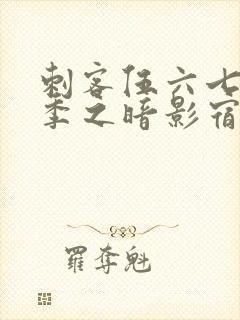 刺客伍六七
季之暗影宿
羅奪魁